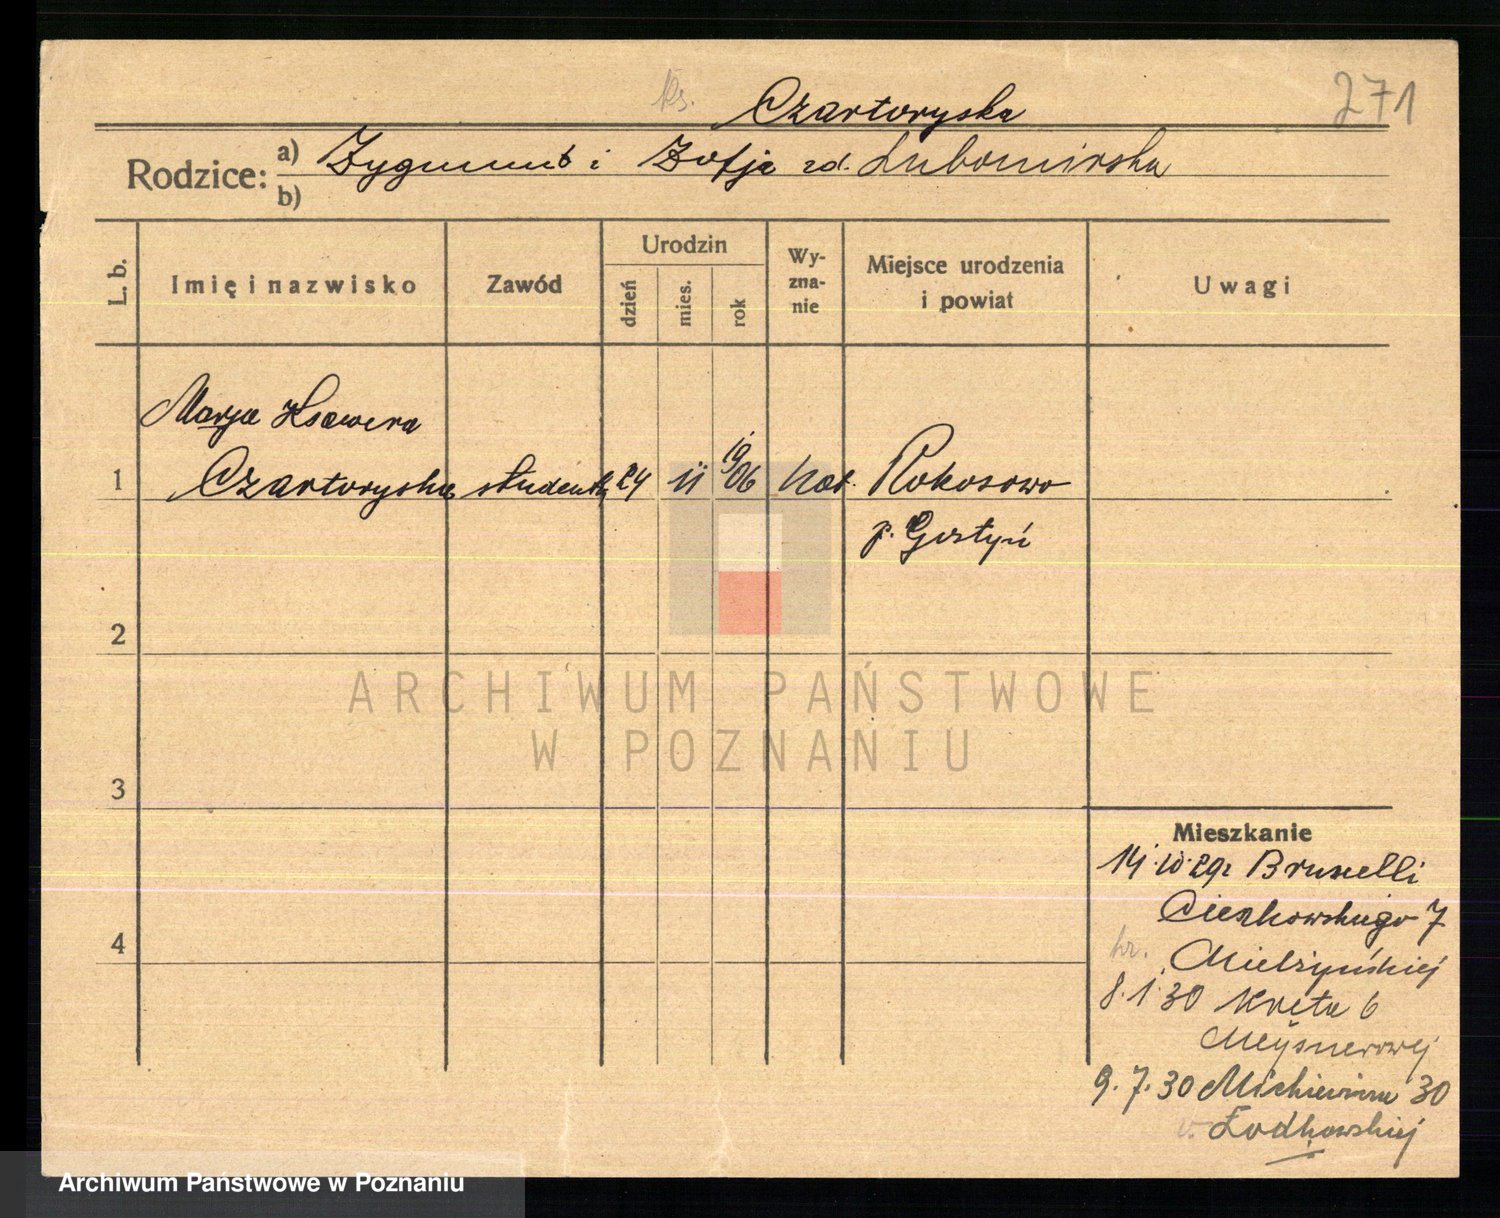 Ks. Czartoryska 271
Rodzice: a) Zygmunt i Zofja zd. Lubomirska
b)
L. b. Imię i nazwisko Zawód Urodzin dzień mies. rok Wyznanie Miejsce urodzenia i powiat Uwagi
Marja Ksawera
1 Czartoryska studentka 24 11 1906 kat. Rokosowo
p. Gostyń
2
ARCHIWUM PAŃSTWOWE
W POZNANIU
3
Mieszkanie
14.10.29r Brukselli
Cieszkowskiego 7
4
hr. Mielżyńskiej
8.1.30 Kręta 6
Meysnerowej
9.7.30 Mickiewicza 30
Łodkowskiej
Archiwum Państwowe w Poznaniu